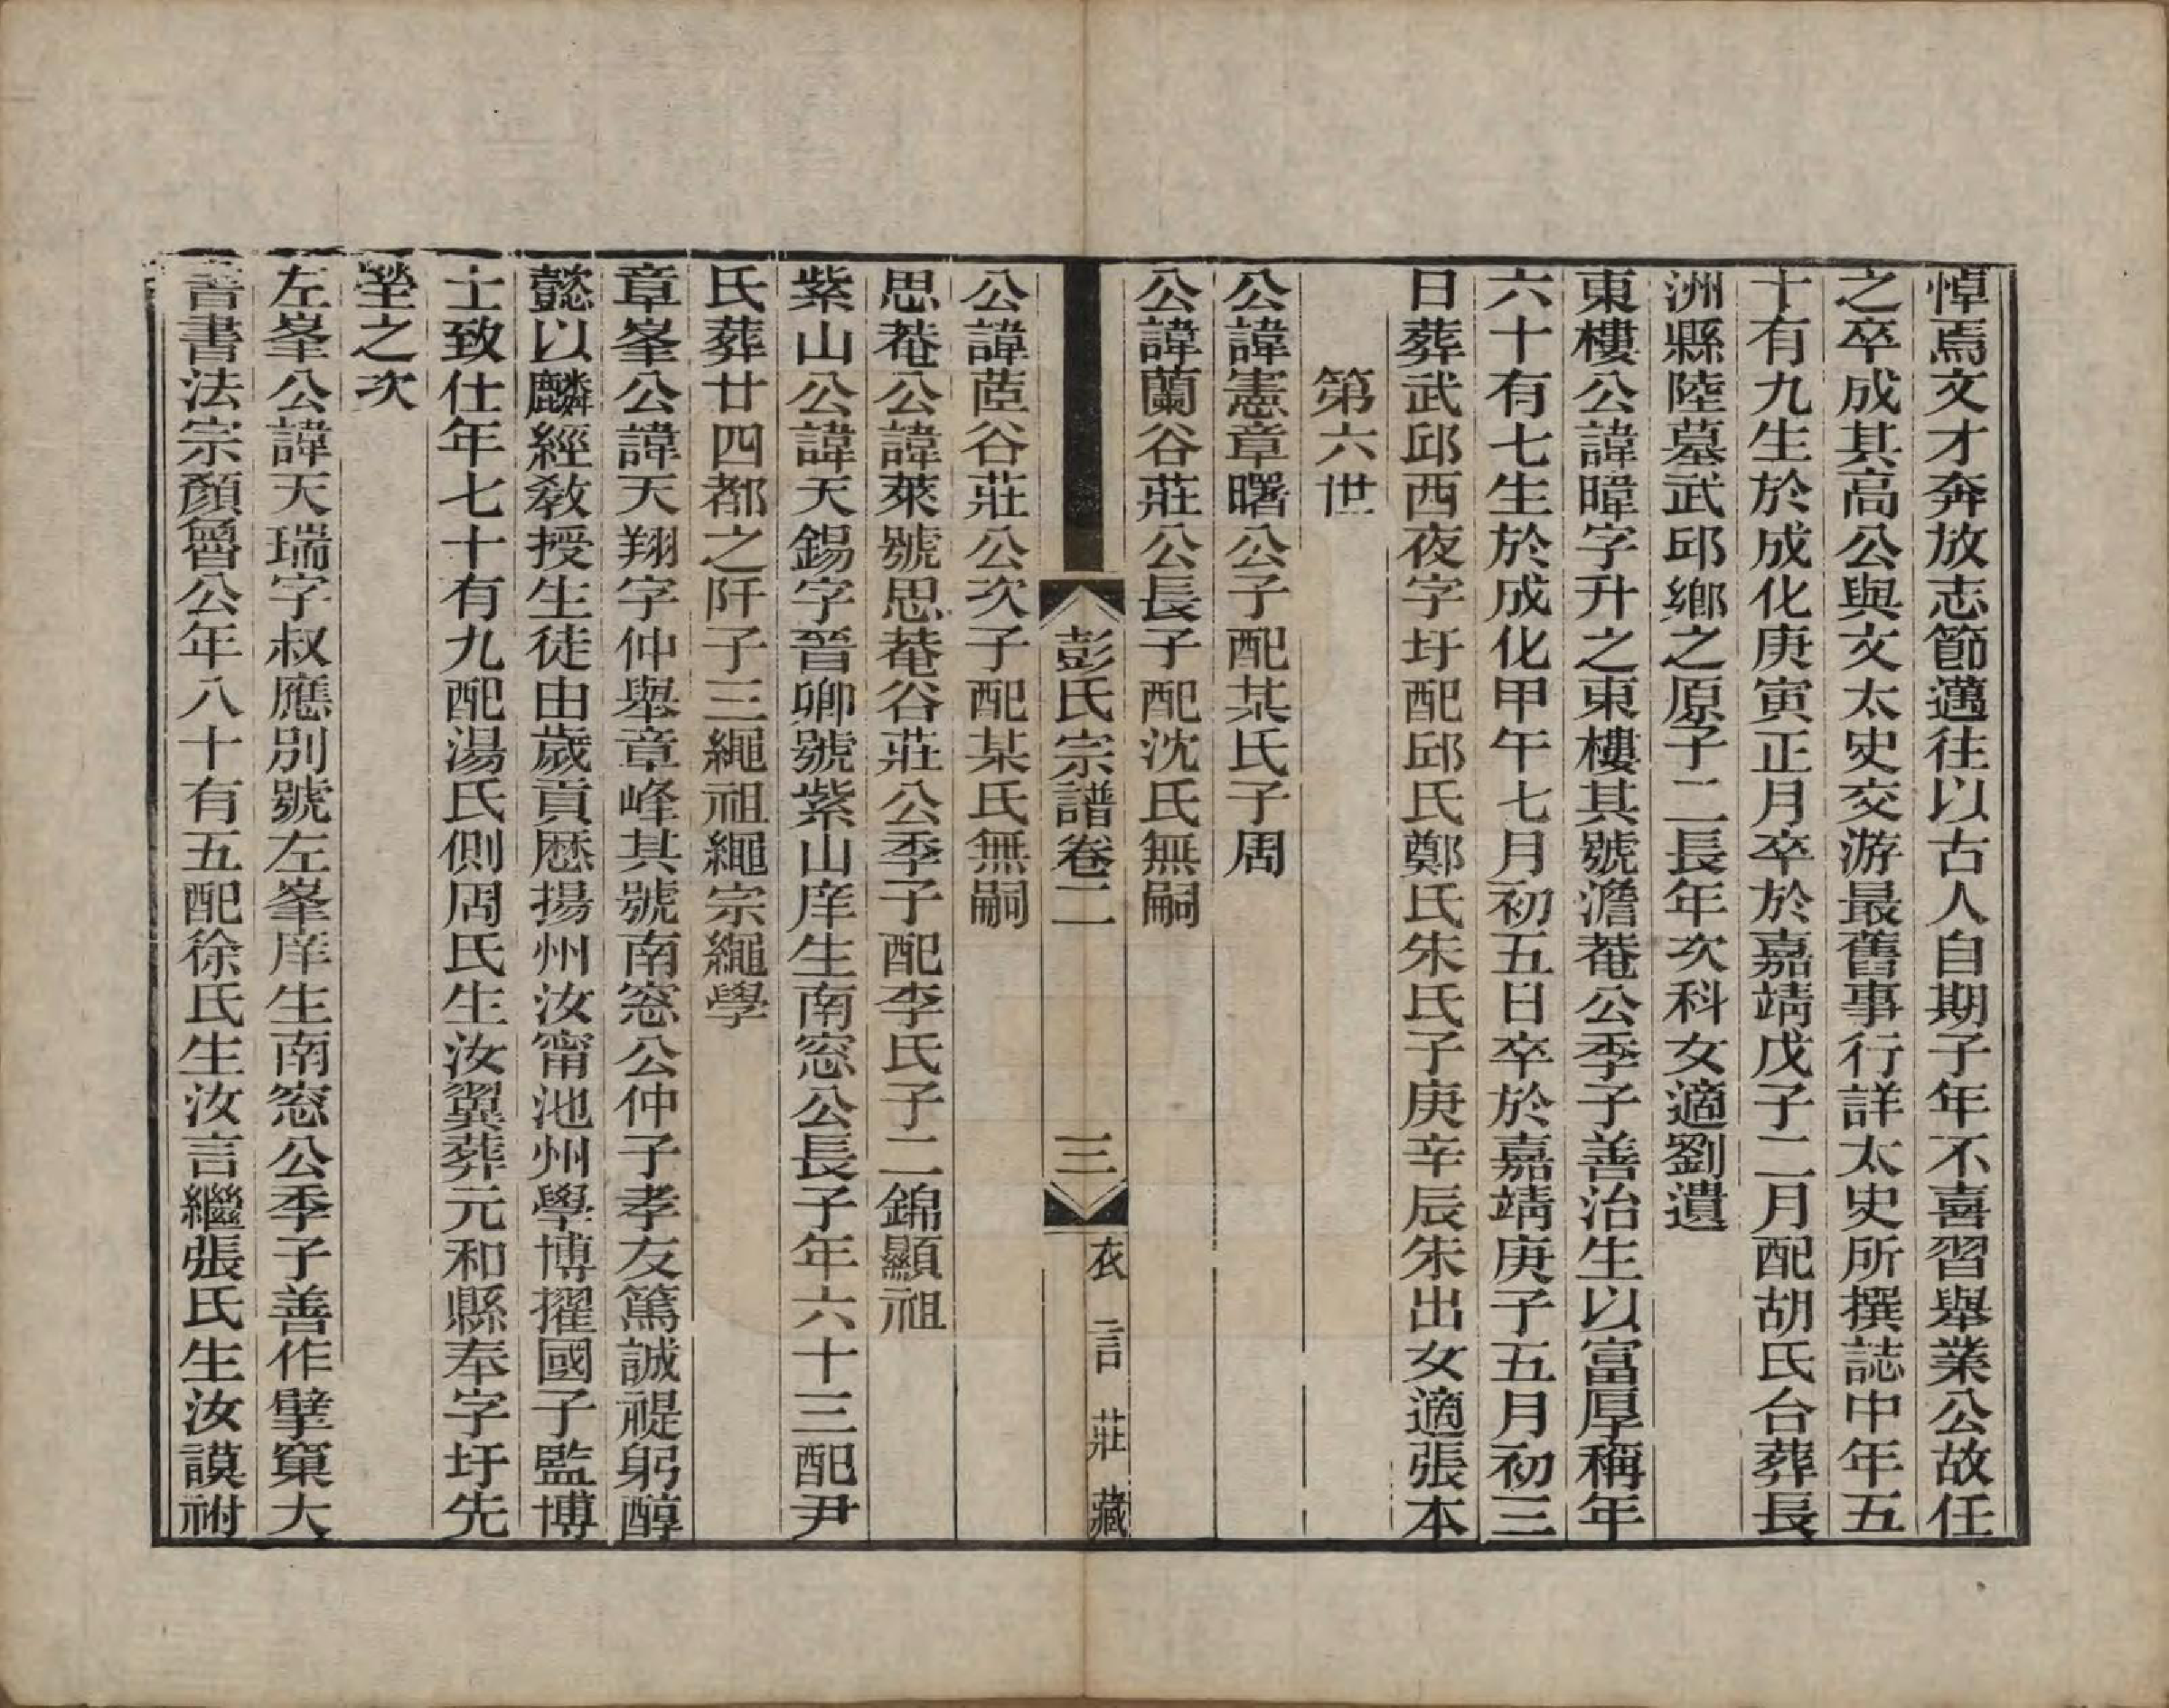 悼焉文才奔放志節邁往以古人自期子年不喜習舉業公故任
之卒成其高公與文太史交游最舊事行詳太史所撰誌中年五
十有九生於成化庚寅正月卒於嘉靖戊子二月配胡氏台葬長
洲縣陸墓武邱鄉之原子二長年次科女適劉遺
東樓公諱暐字升之東樓其號澹菴公季子善治生以富厚稱年
六十有七生於成化甲午七月初五日卒於嘉靖庚子五月初三
日葬武邱西夜字圩配邱氏鄭氏朱氏子庚辛辰朱出女適張本
第六世
公諱憲章曙公子配某氏子周
公諱蘭谷莊公長子配沈氏無嗣
彭氏宗譜卷二
三
衣言莊藏
公諱茝谷莊公次子配某氏無嗣
思菴公諱萊號思菴谷莊公季子配李氏子二錦顯祖
紫山公諱天錫字晉卿號紫山庠生南窓公長子年六十三配尹
氏葬廿四都之阡子三繩祖繩宗繩學
章峯公諱天翔字仲舉章峰其號南窓公仲子孝友篤誠禔躬醇
懿以麟經教授生徒由歲貢歷揚州汝甯池州學博擢國子監博
士致仕年七十有九配湯氏側周氏生汝翼葬元和縣奉字圩先
塋之次
左峯公諱天瑞字叔應別號左峯庠生南窓公季子善作擘窠大
書書法宗顏魯公年八十有五配徐氏生汝言繼張氏生汝謨祔